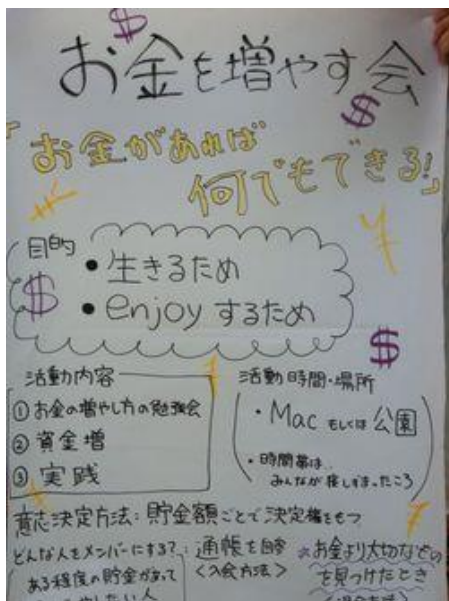 お金を増やす会
「お金があれば
何でもできる!」
目的
• 生きるため
• enjoy するため
活動内容
① お金の増やし方の勉強会
② 資金増
③ 実践
活動時間・場所
・Mac もしくは 公園
・時間帯は
みんなが寝しずまったころ
意志決定方法:貯金額ごとで決定権をもつ
どんな人をメンバーにする?:
ある程度の貯金があって
通帳を
〈入会方法〉
お金より大切なもの
を見つけたとき